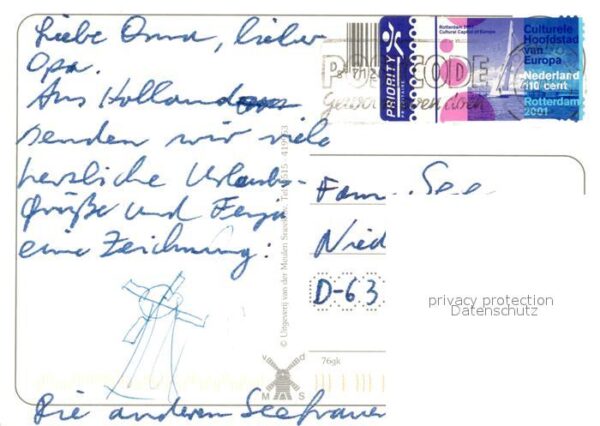 Liebe Oma, lieber
Opa.
Aus Holland
senden wir viele
herzliche Urlaubs-
grüße und Fenja
eine Zeichnung:
Die anderen Seefrauen
Rotterdam 2001
Cultural Capital of Europe
PRIORITY
Culturele
Hoofdstad
van
Europa
Nederland
110 cent
Rotterdam
2001
POSTCODE
© Uitgeverij van der Meulen Sneek bv. Tel. 0515 - 419653
Fam. See
Nied
D-63
privacy protection
Datenschutz
76gk
M S